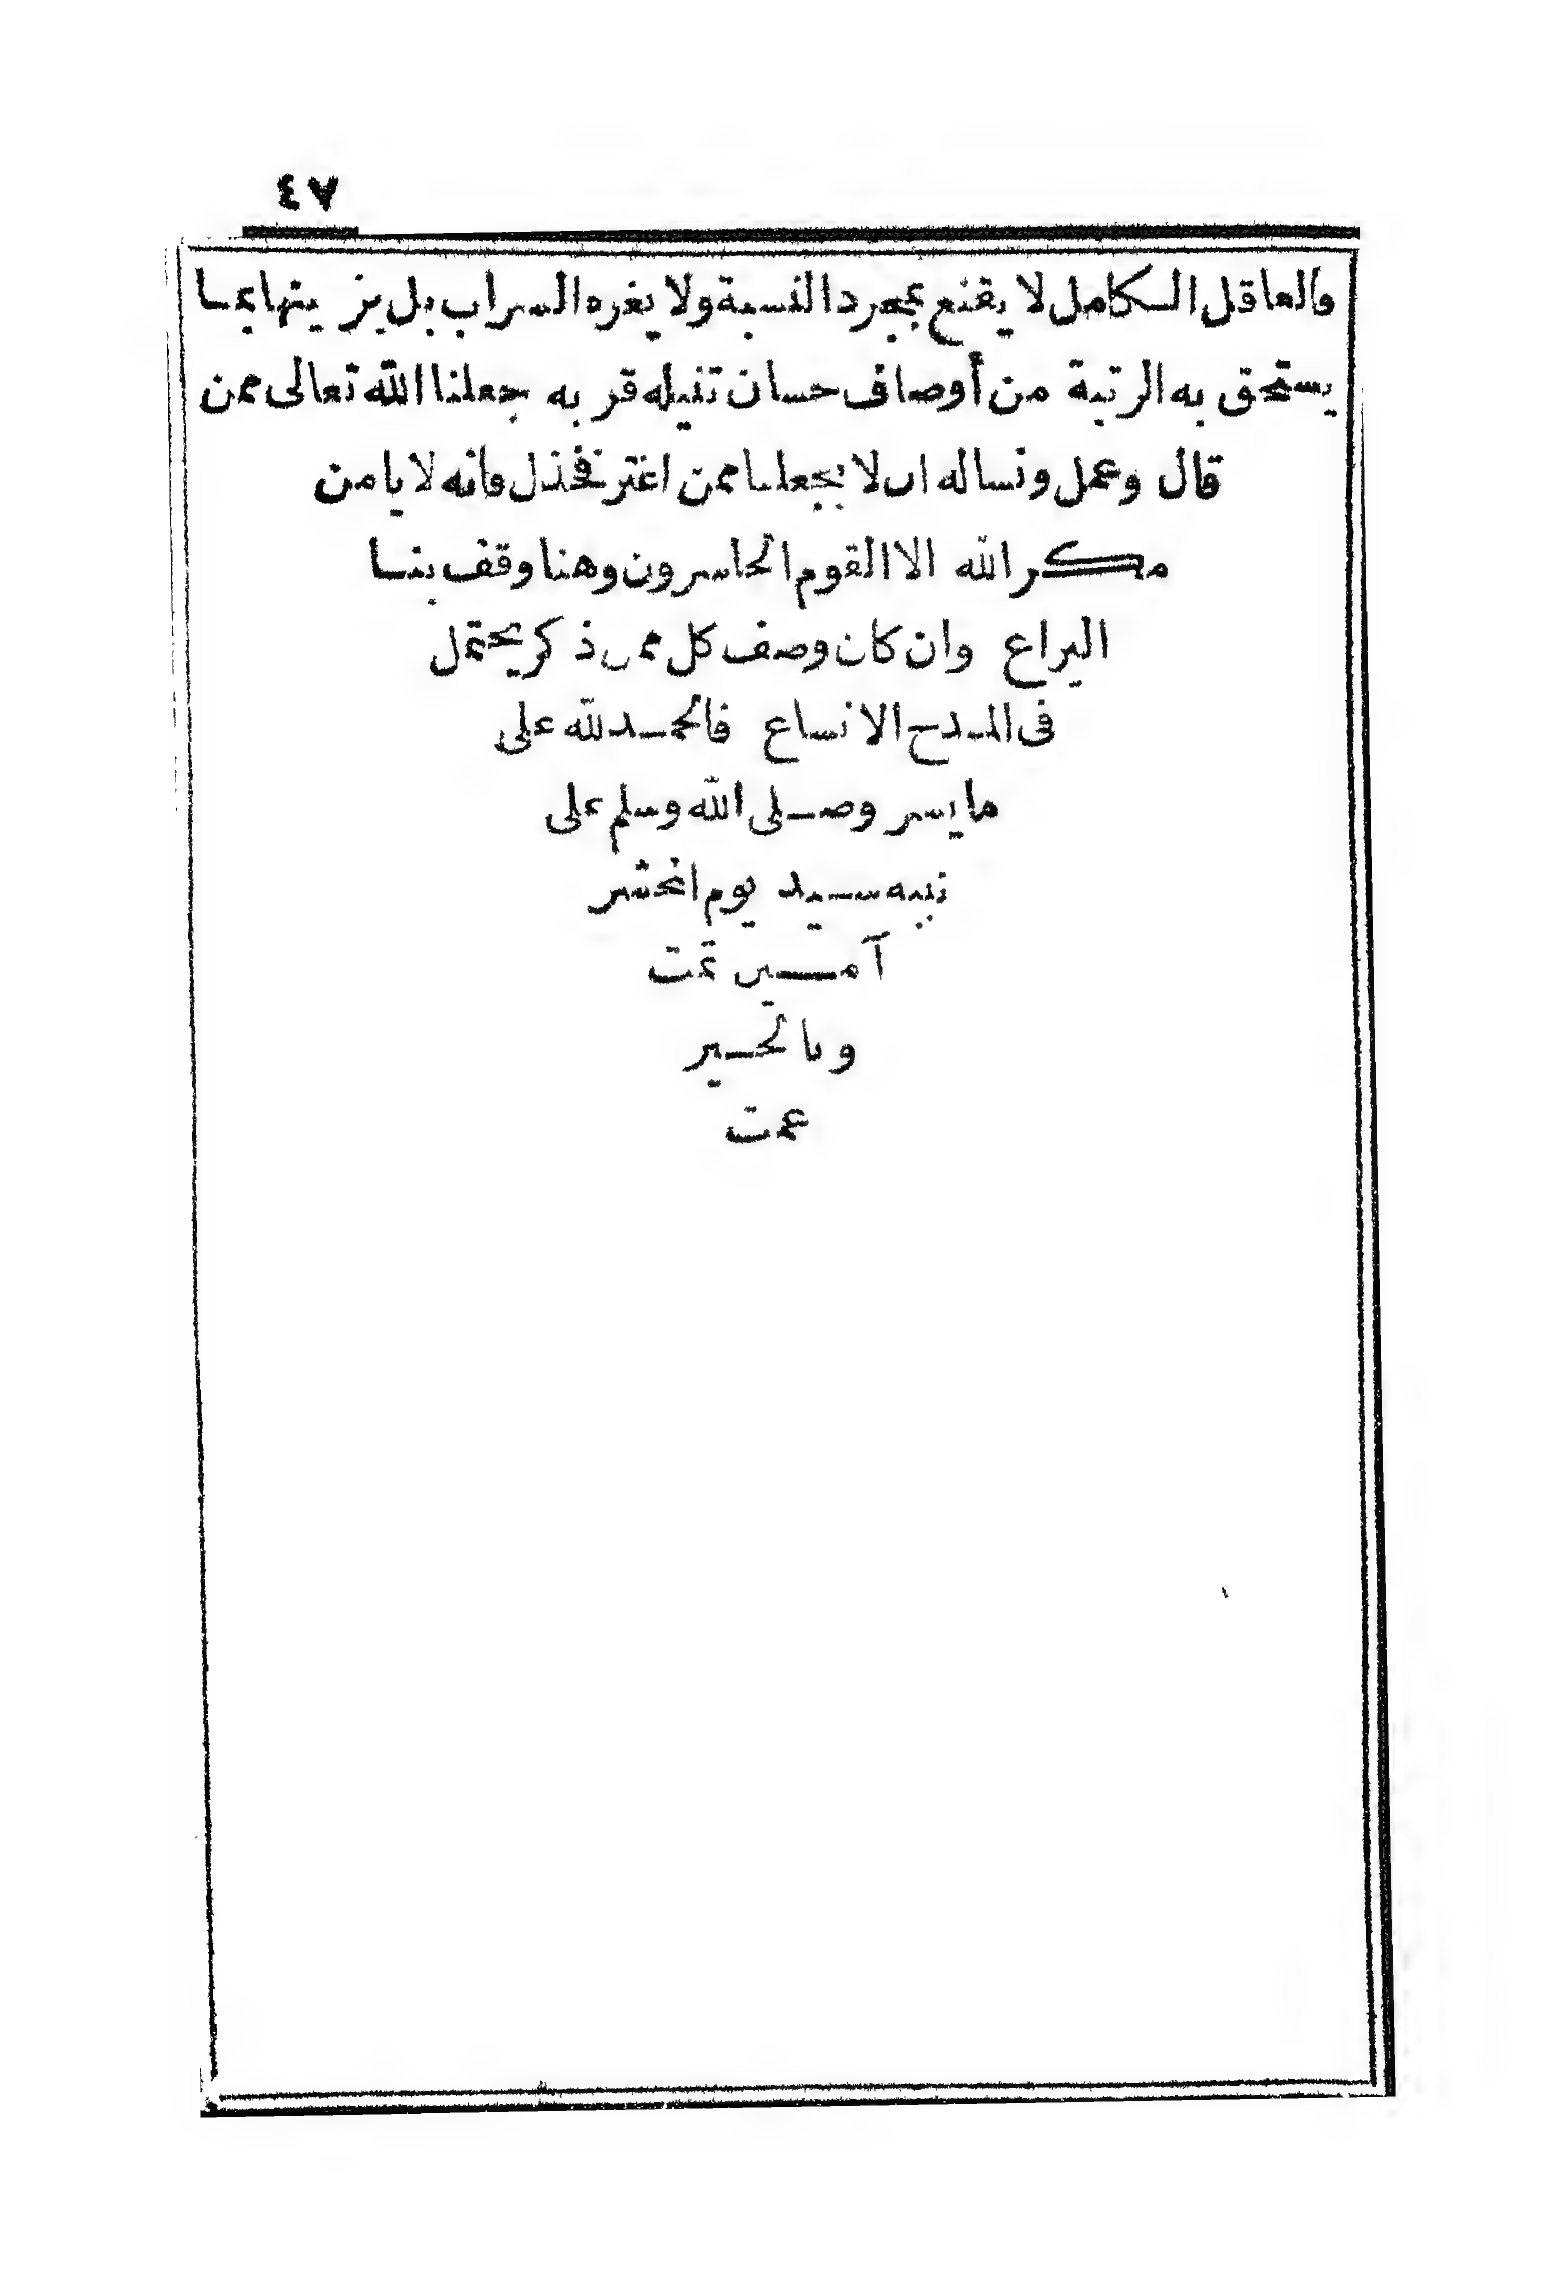 ٤٧
والعاقل الكامل لا يقنع بمجرد النسبة ولا يغره السراب بل يزينها بما
يستحق به الرتبة من أوصاف حسان تنيله قربه جعلنا الله تعالى ممن
قال وعمل ونساله ان لا يجعلنا ممن اغتر فخذل فانه لا يامن
مكر الله الا القوم الخاسرون وهنا وقف بنا
اليراع وان كان وصف كل ممن ذكر يحتمل
في المدح الاتساع فالحمد لله على
ما يسر وصلى الله وسلم على
نبيه سيد يوم المحشر
آمين تمت
وبالخير
عمت